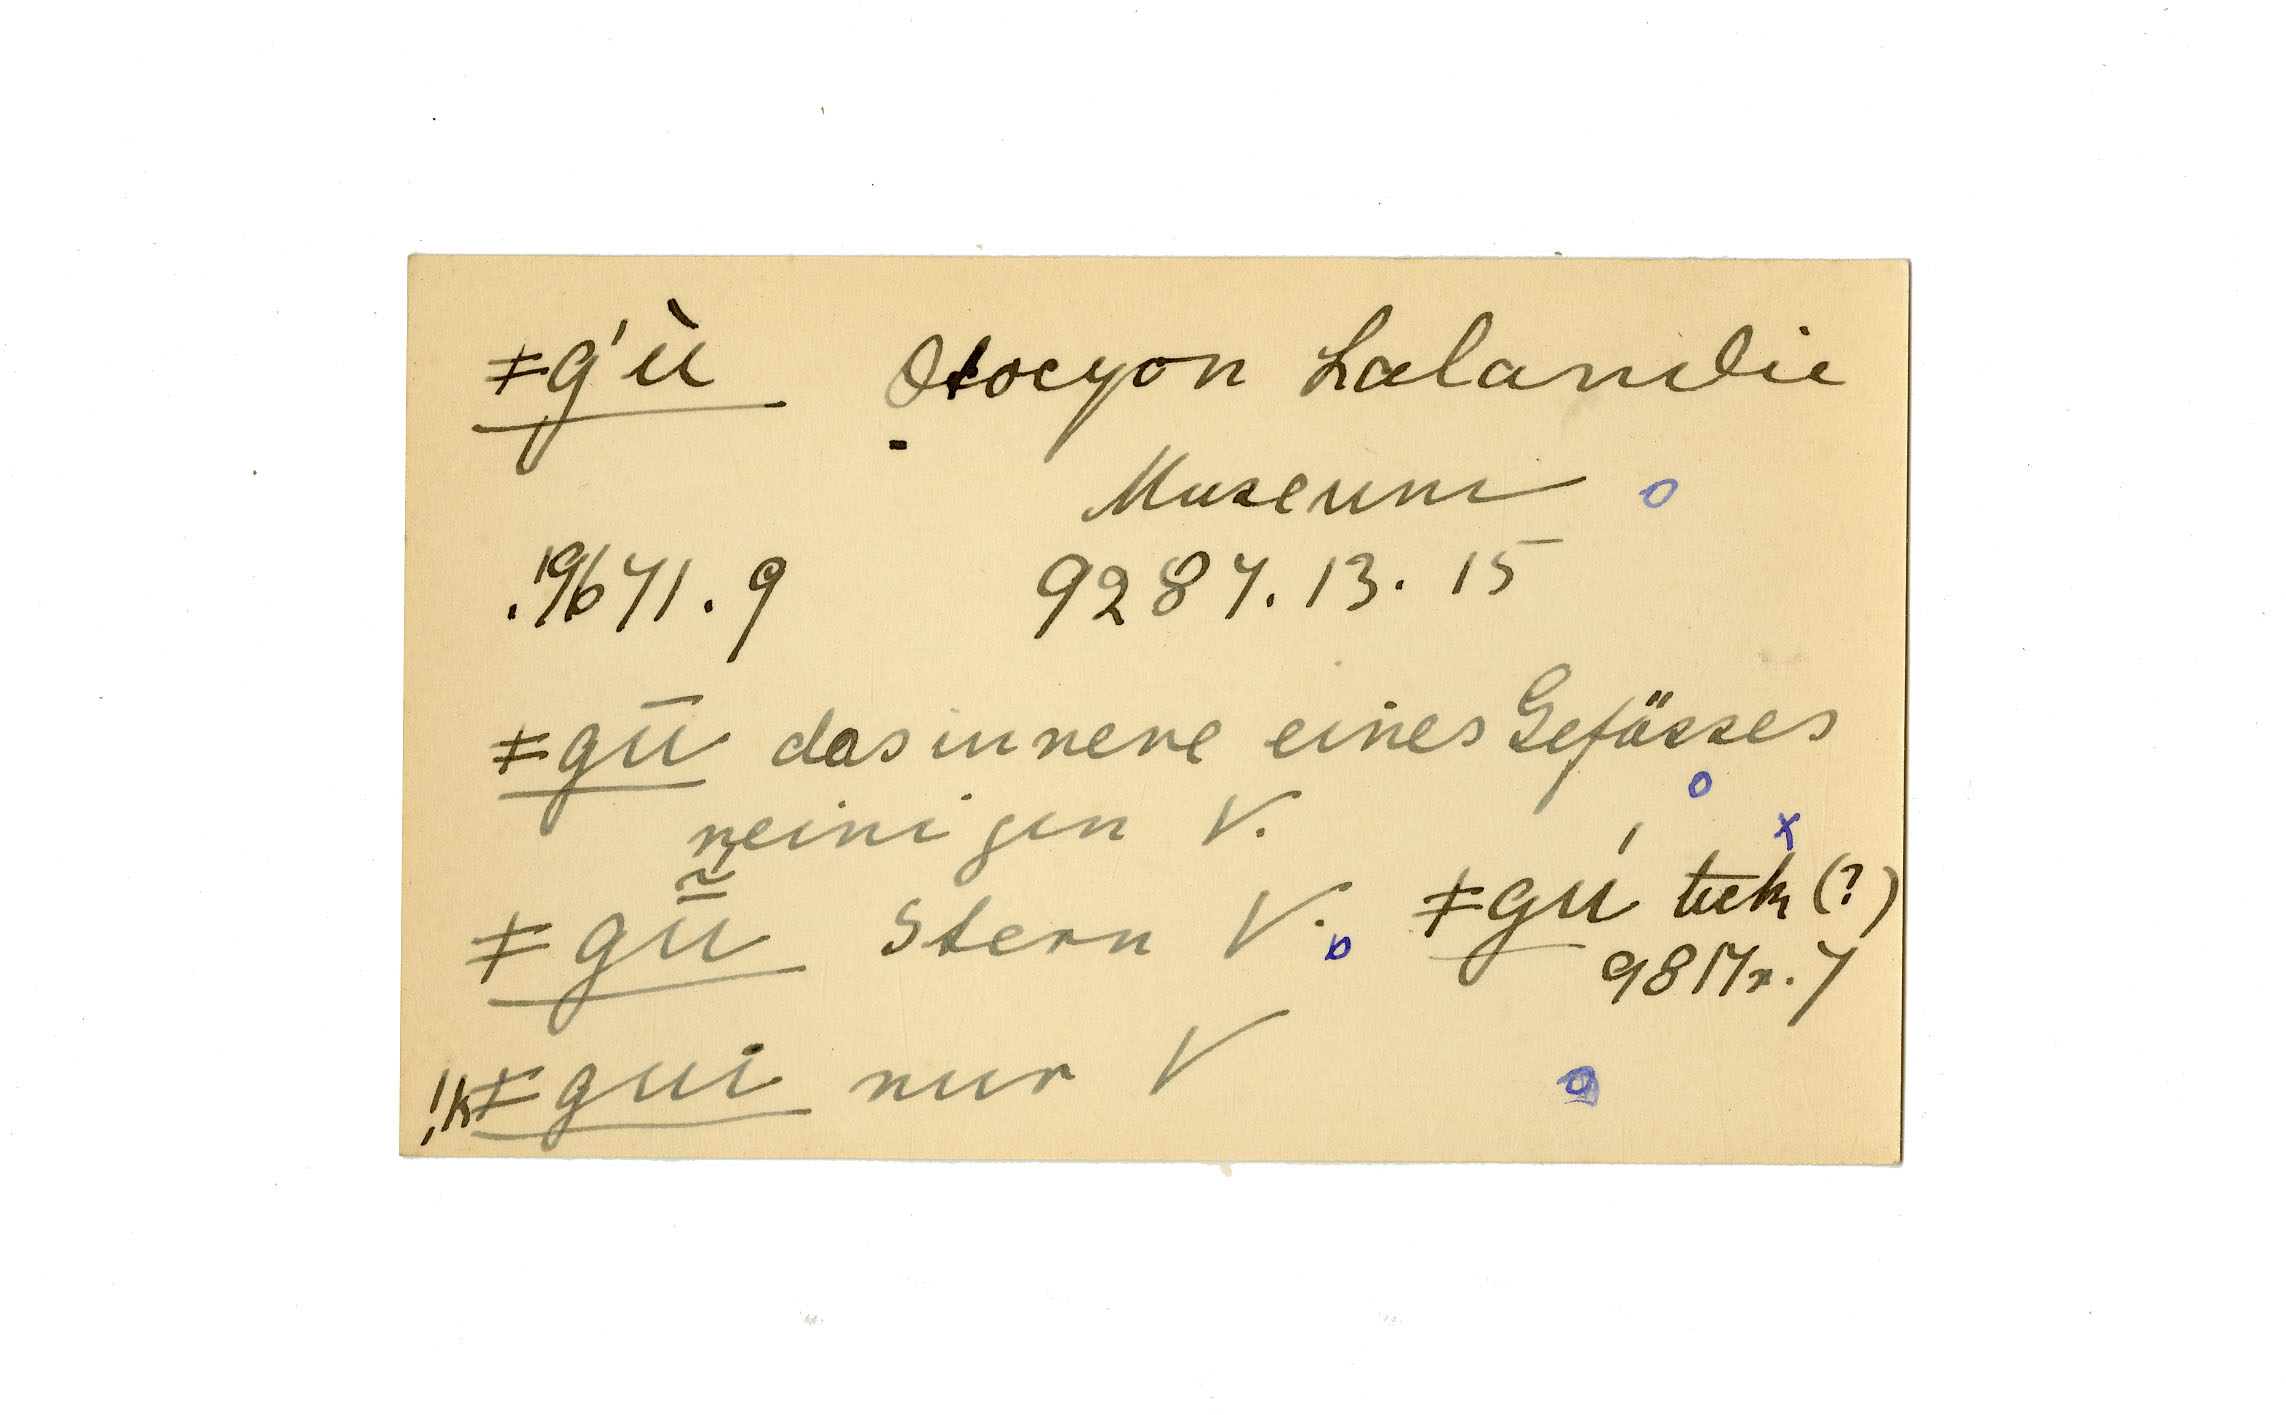 ǂg'ù Otocyon Lalandie
Museum o
.19671.9 9287.13.15
ǂgū das innere eines Gefässes
o
reinigen V. x
ǂgū̃ Stern V. o ǂgú tiek (?)
9817
ǂgui nur V o